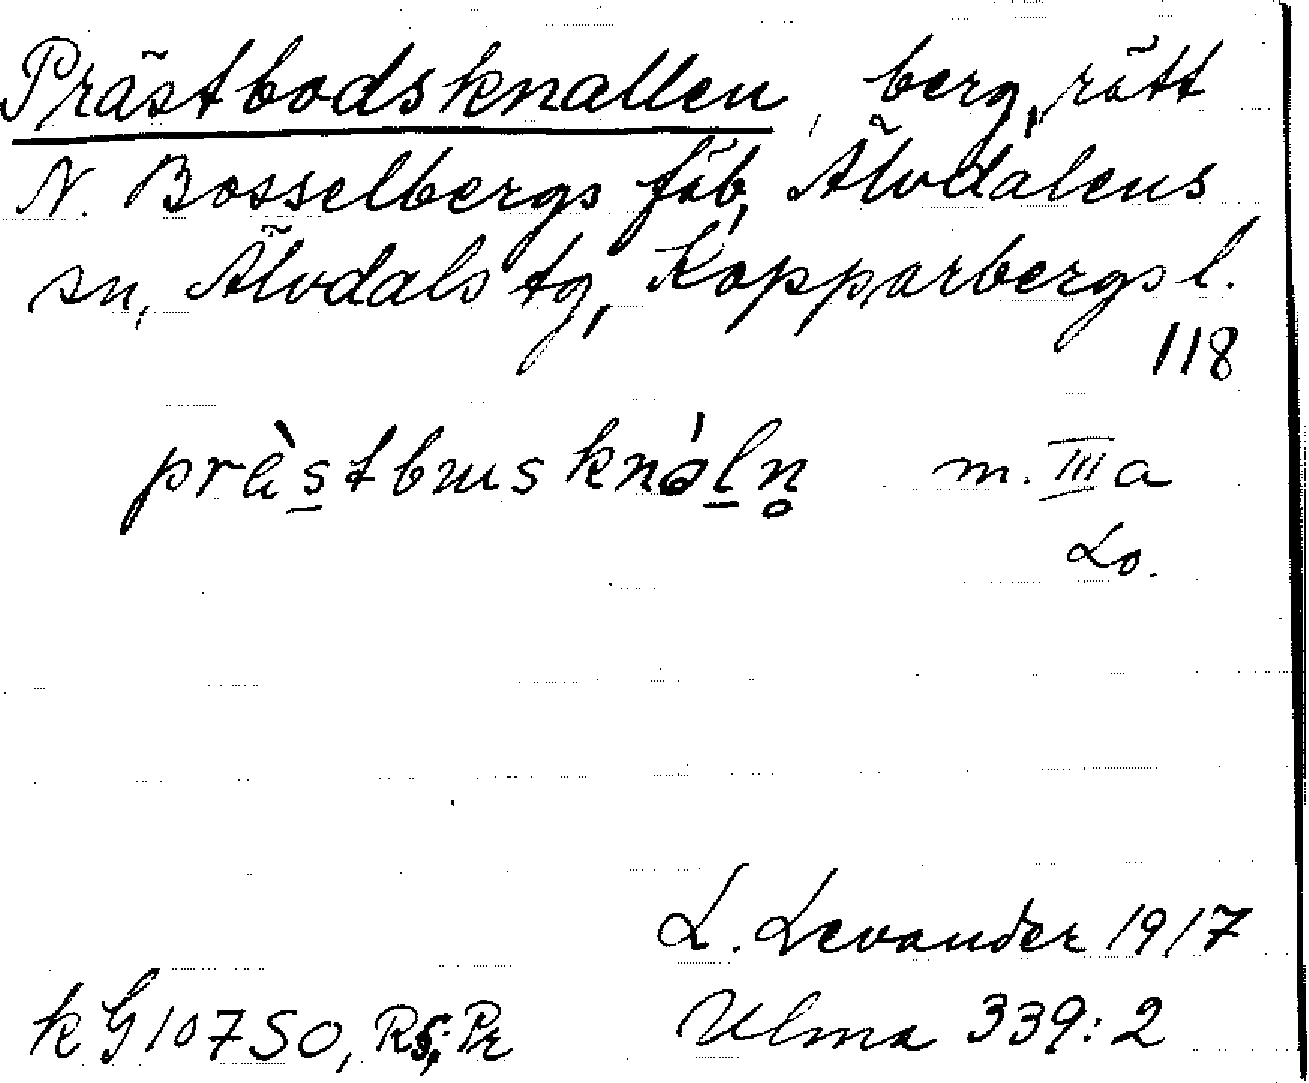 Prästbodsknallen, berg, rätt
N. Bosselbergs fäb, Älvdalens
sn, Älvdals tg, Kopparbergs l.
118
prä̀s̲tbɯskná̀l̲n̥ m. III a
Lo.
L. Levander 1917
k G 10750, Rs; Pr Ulma 339:2